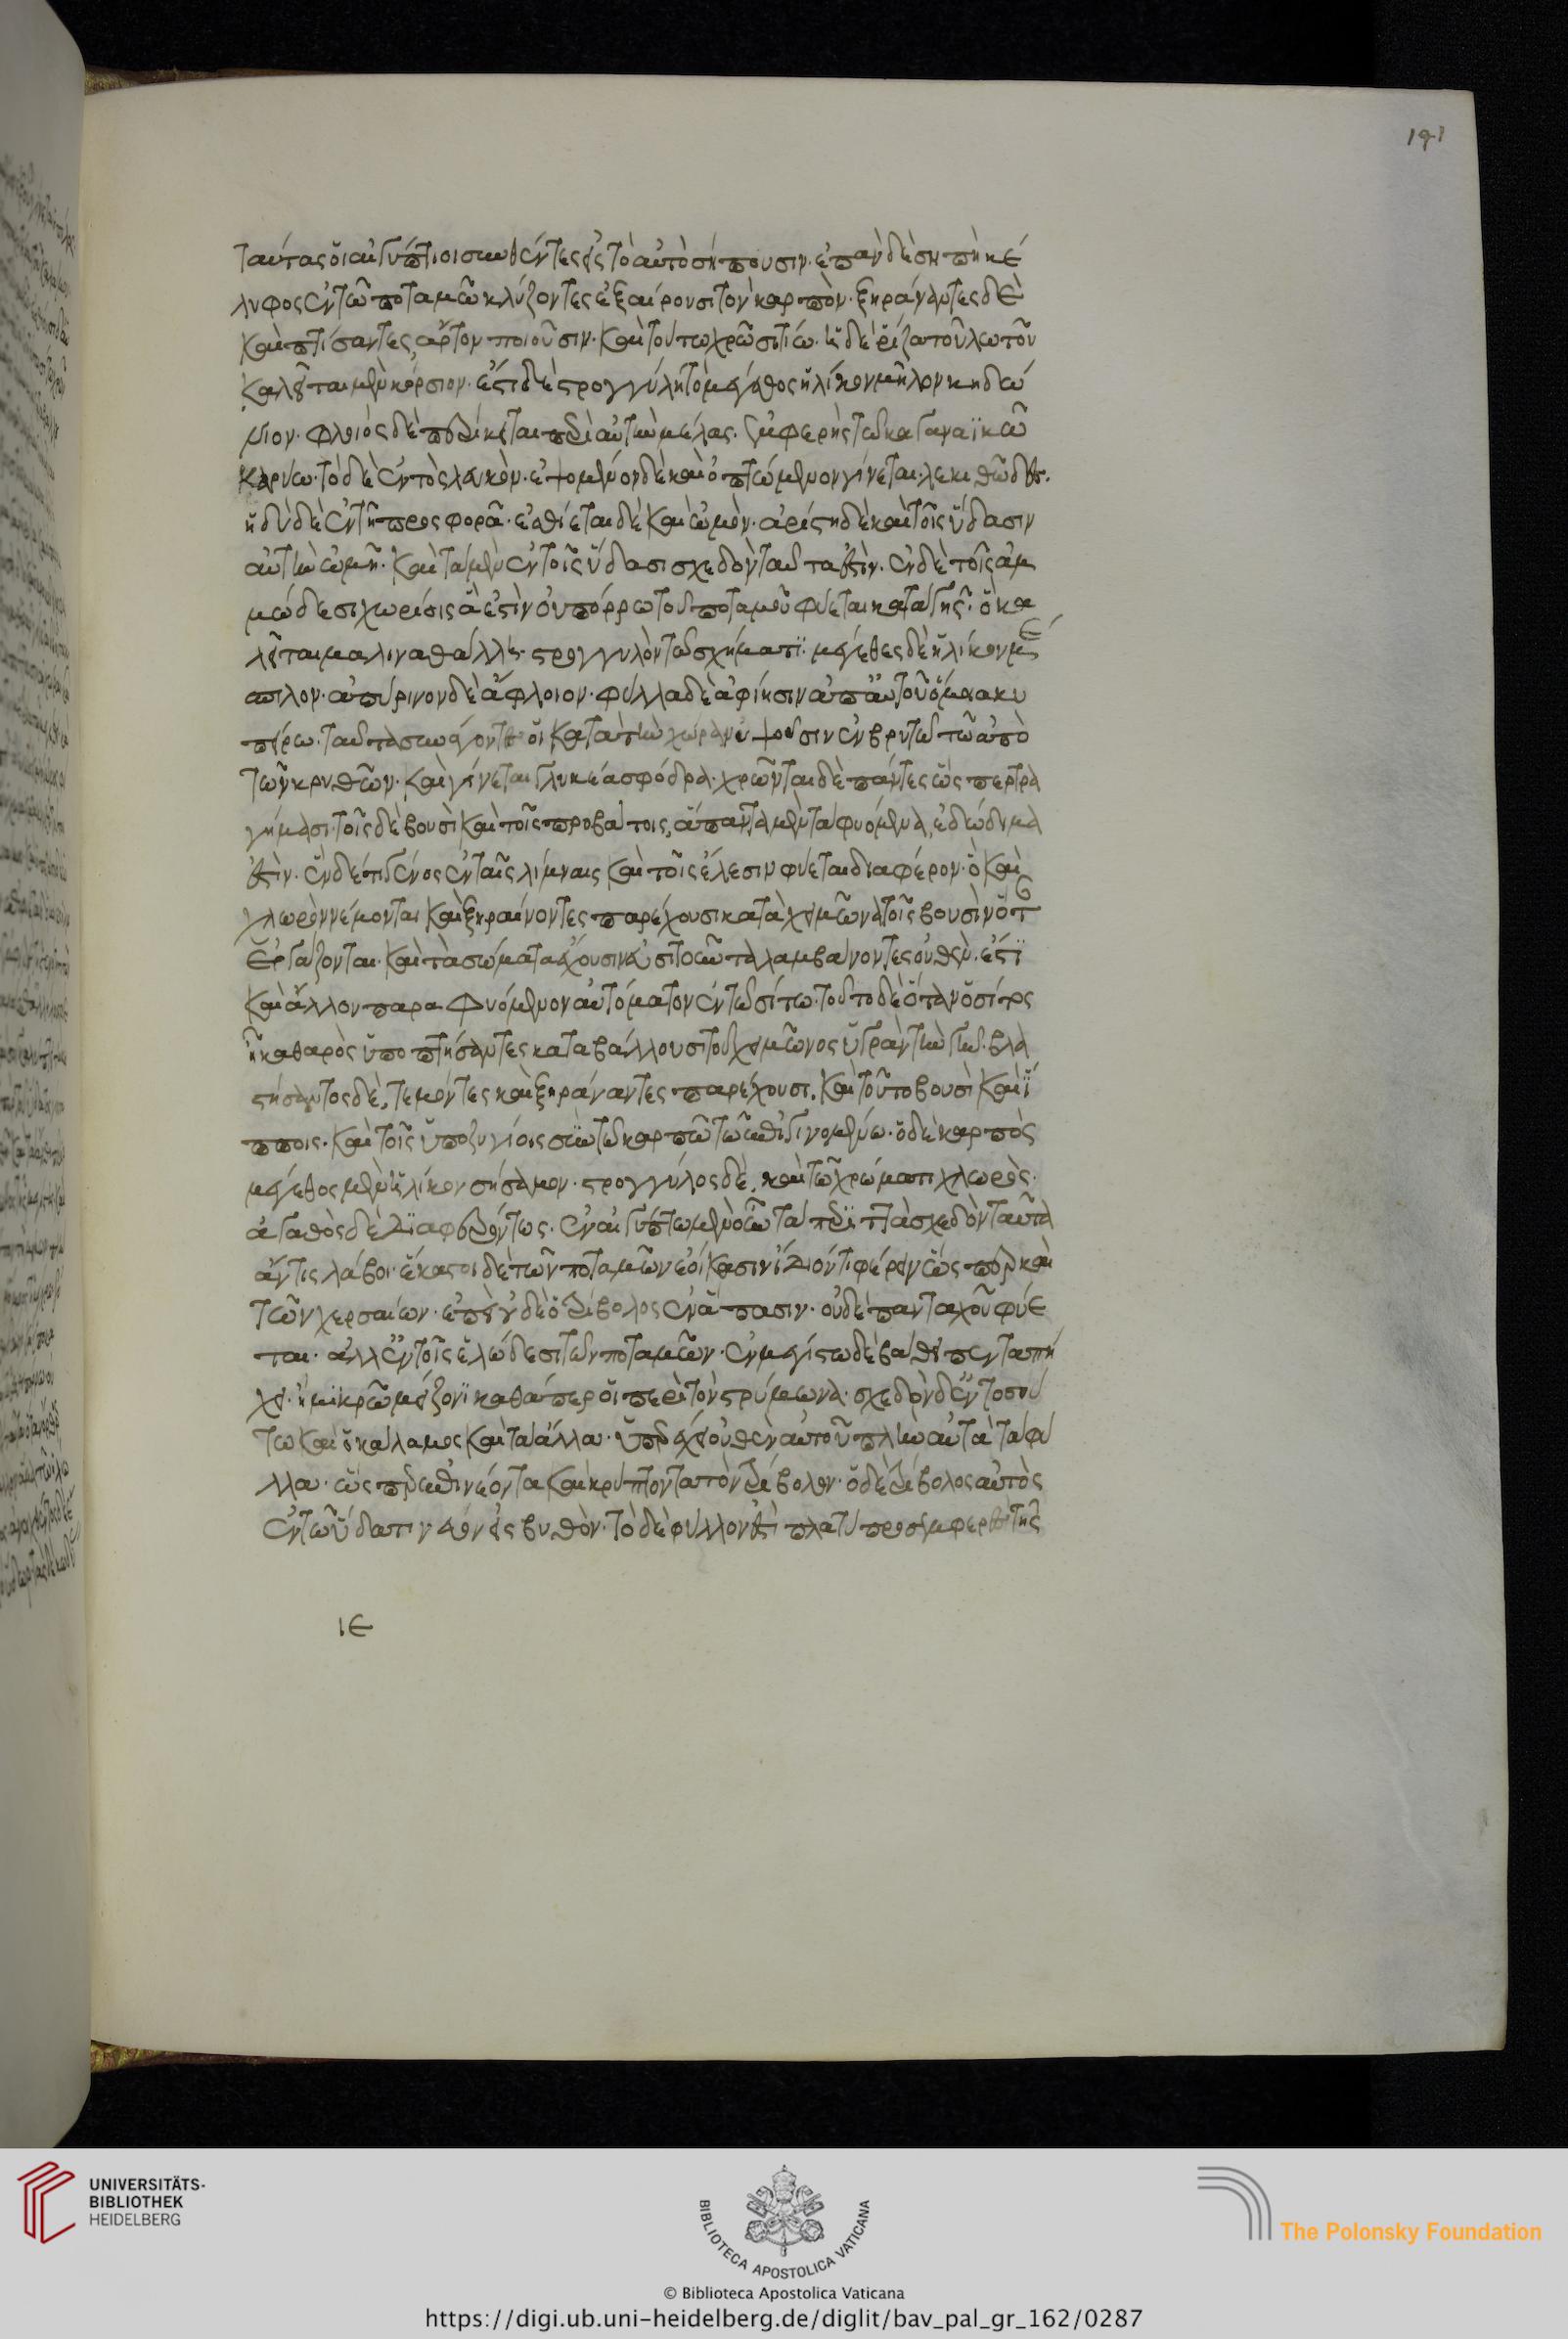 191
ταύτας οἱ αἰγύπτιοι συνθέντες εἰς τὸ αὐτὸ σήπουσιν· ἐπὰν δὲ σηπῆ κέ
λυφος ἐν τῶ ποταμῶ κλύζοντες ἐξαίρουσι τὸν καρπὸν· ξηράναντες δὲ
καὶ πτίσαντες, ἄρτον ποιοῦσιν· καὶ τούτω χρῶ σιτίω· ἡ δὲ ῥίζα τοῦ λωτοῦ
καλεῖται μὲν κόρσιον· ἐστὶ δὲ στρογγύλη τὸ μέγεθος ἡλίκον μῆλον κηδώ
νιον· φλοιὸς δὲ περίκειται περὶ αὐτὴν μέλας· ἐμφερὴς τῶ κασταναϊκῶ
καρύω· τὸ δὲ ἐντὸς λευκὸν· ἑψόμενον δὲ καὶ ὀπτώμενον γίνεται λεκιθῶδες·
ἡδὺ δὲ ἐν τῆ προσφορᾶ· ἐσθίεται δὲ καὶ ὠμὸν· ἀρίστη δὲ καὶ τοῖς ὕδασιν
αὐτὴ ὠμὴ· καὶ τὰ μὲν ἐν τοῖς ὕδασι σχεδὸν ταῦτά ἐστιν· ἐν δὲ τοῖς ἀμ
μώδεσι χωρίοις ἅ ἐστὶν οὐ πόρρω τοῦ ποταμοῦ φύεται κατὰ γῆς· ὃ κα
λεῖται μαλιναθάλλη· στρογγυλὸν τῶ σχήματι· μέγεθος δὲ ἡλίκον μέ
σπιλον· ἀπύρινον δὲ ἄφλοιον· φύλλα δὲ ἀφίησιν ἀπ' αὐτοῦ ὅμοια κυ
πείρω· ταῦτα συνάγοντες οἱ κατὰ τὴν χώραν ἕψουσιν ἐν βρυτῶ τῶ ἀπὸ
τῶν κριθῶν· καὶ γίνεται γλυκέα σφόδρα· χρῶνται δὲ πάντες ὥσπερ τρα
γήμασι· τοῖς δὲ βουσὶ καὶ τοῖς προβάτοις, ἅπαντα μὲν τὰ φυόμενα, ἐδώδιμά
ἐστὶν· ἓν δέ τι γένος ἐν ταῖς λίμναις καὶ τοῖς ἕλεσιν φύεται διαφέρον· ὃ καὶ
χλωρὸν νέμονται καὶ ξηραίνοντες παρέχουσι κατὰ χειμῶνα τοῖς βουσὶν ὅτ
ἐργάζονται· καὶ τὰ σώματα ἔχουσιν εὖ σίτου ἄλλα λαμβάνοντες οὐθὲν· ἐστὶ
καὶ ἄλλον παραφυόμενον αὐτόματον ἐν τῶ σίτω· τοῦτο δὲ ὅταν ὁ σῖτος
ἦ καθαρὸς ὑποπτήσαντες καταβάλλουσι τοῦ χειμῶνος ὑγρὰν τὴν γῆν· βλα
στήσαντος δὲ, τεμόντες καὶ ξηράναντες παρέχουσι. καὶ τοῦτο βουσὶ καὶ ἵ
πποις· καὶ τοῖς ὑποζυγίοις σὺν τῶ καρπῶ τῶ ἐπιγινομένω· ὁ δὲ καρπὸς
μέγεθος μὲν ἡλίκον σήσαμον· στρογγύλος δὲ, καὶ τῶ χρώματι χλωρὸς·
ἀγαθὸς δὲ διαφερόντως· ἐν αἰγύπτω μὲν οὖν τὰ περιττὰ σχεδὸν ταῦτα
ἄν τις λάβοι· ἕκαστοι δὲ τῶν ποταμῶν ἐοίκασιν ἴδιόν τι φέρειν ὥσπερ καὶ
τῶν χερσαίων· ἐπεὶ οὐδὲ ὁ τρίβολος ἐν ἅπασιν· οὐδὲ πανταχοῦ φύε
ται· ἀλλ' ἐν τοῖς ἑλώδεσι τῶν ποταμῶν· ἐν μεγίστω δὲ βάθει πενταπή
χει· ἢ μικρῶ μείζονι καθάπερ οἱ περὶ τὸν στρύμωνα· σχεδὸν δὲ ἐν τοσού
τω καὶ ὁ κάλαμος καὶ τὰ ἄλλα· ὑπερέχει οὐθὲν αὐτοῦ πλὴν αὐτὰ τὰ φύ
λλα· ὥσπερ ἐπινέοντα καὶ κρύπτοντα τὸν τρίβολον· ὁ δὲ τρίβολος αὐτὸς
ἐν τῶ ὕδατι νεύων εἰς βυθὸν· τὸ δὲ φύλλον ἐστὶ πλατὺ προσεμφερὲς τῆς
ιε
UNIVERSITÄTS-
BIBLIOTHEK
HEIDELBERG
BIBLIOTECA APOSTOLICA VATICANA
The Polonsky Foundation
© Biblioteca Apostolica Vaticana
https://digi.ub.uni-heidelberg.de/diglit/bav_pal_gr_162/0287